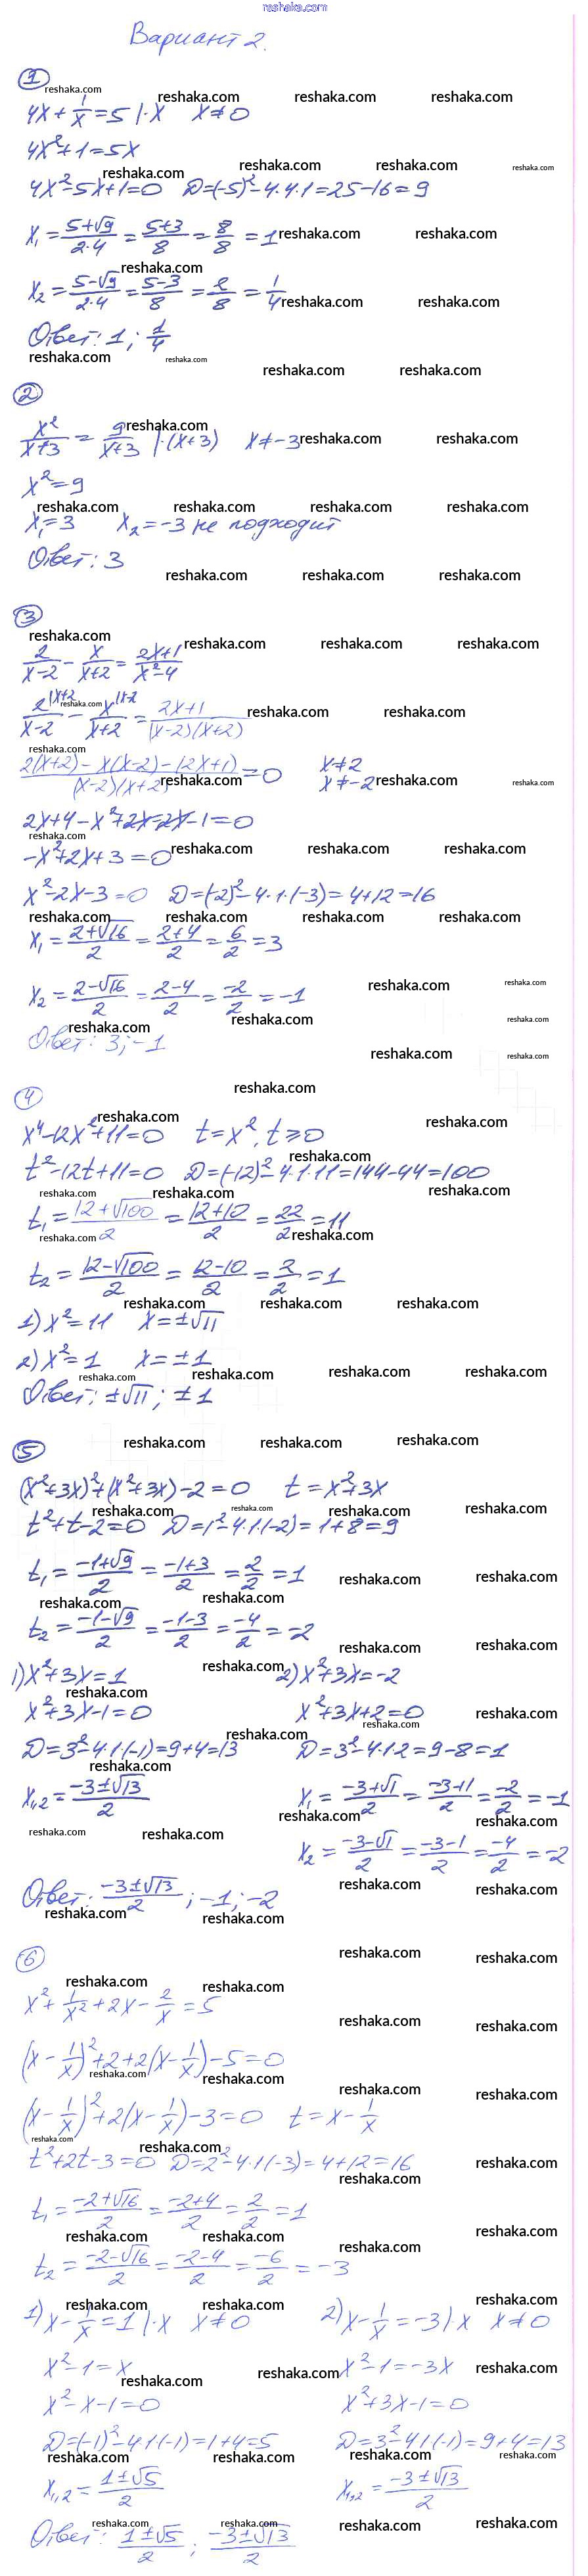 reshaka.com
Вариант 2.
1
4x + 1/x = 5 | · x   x ≠ 0
4x² + 1 = 5x
4x² - 5x + 1 = 0   D = (-5)² - 4 · 4 · 1 = 25 - 16 = 9
x₁ = (5+√9)/(2·4) = (5+3)/8 = 8/8 = 1
x₂ = (5-√9)/(2·4) = (5-3)/8 = 2/8 = 1/4
Ответ: 1; 1/4
2
x²/(x+3) = 9/(x+3) | · (x+3)   x ≠ -3
x² = 9
x₁ = 3   x₂ = -3 не подходит
Ответ: 3
3
2/(x-2) - x/(x+2) = (2x+1)/(x²-4)
2^(|x+2)/(x-2) - x^(|x-2)/(x+2) = (2x+1)/((x-2)(x+2))
(2(x+2) - x(x-2) - (2x+1))/((x-2)(x+2)) = 0   x ≠ 2
x ≠ -2
2x + 4 - x² + 2x - 2x - 1 = 0
-x² + 2x + 3 = 0
x² - 2x - 3 = 0   D = (-2)² - 4 · 1 · (-3) = 4 + 12 = 16
x₁ = (2+√16)/2 = (2+4)/2 = 6/2 = 3
x₂ = (2-√16)/2 = (2-4)/2 = -2/2 = -1
Ответ: 3; -1
4
x⁴ - 12x² + 11 = 0   t = x², t ≥ 0
t² - 12t + 11 = 0   D = (-12)² - 4 · 1 · 11 = 144 - 44 = 100
t₁ = (12+√100)/2 = (12+10)/2 = 22/2 = 11
t₂ = (12-√100)/2 = (12-10)/2 = 2/2 = 1
1) x² = 11   x = ±√11
2) x² = 1   x = ±1
Ответ: ±√11; ±1
5
(x² + 3x)² + (x² + 3x) - 2 = 0   t = x² + 3x
t² + t - 2 = 0   D = 1² - 4 · 1 · (-2) = 1 + 8 = 9
t₁ = (-1+√9)/2 = (-1+3)/2 = 2/2 = 1
t₂ = (-1-√9)/2 = (-1-3)/2 = -4/2 = -2
1) x² + 3x = 1   2) x² + 3x = -2
x² + 3x - 1 = 0   x² + 3x + 2 = 0
D = 3² - 4 · 1 · (-1) = 9 + 4 = 13   D = 3² - 4 · 1 · 2 = 9 - 8 = 1
x₁,₂ = (-3±√13)/2   x₁ = (-3+√1)/2 = (-3+1)/2 = -2/2 = -1
x₂ = (-3-√1)/2 = (-3-1)/2 = -4/2 = -2
Ответ: (-3±√13)/2; -1; -2
6
x² + 1/x² + 2x - 2/x = 5
(x - 1/x)² + 2 + 2(x - 1/x) - 5 = 0
(x - 1/x)² + 2(x - 1/x) - 3 = 0   t = x - 1/x
t² + 2t - 3 = 0   D = 2² - 4 · 1 · (-3) = 4 + 12 = 16
t₁ = (-2+√16)/2 = (-2+4)/2 = 2/2 = 1
t₂ = (-2-√16)/2 = (-2-4)/2 = -6/2 = -3
1) x - 1/x = 1 | · x   x ≠ 0   2) x - 1/x = -3 | · x   x ≠ 0
x² - 1 = x   x² - 1 = -3x
x² - x - 1 = 0   x² + 3x - 1 = 0
D = (-1)² - 4 · 1 · (-1) = 1 + 4 = 5   D = 3² - 4 · 1 · (-1) = 9 + 4 = 13
x₁,₂ = (1±√5)/2   x₁,₂ = (-3±√13)/2
Ответ: (1±√5)/2; (-3±√13)/2